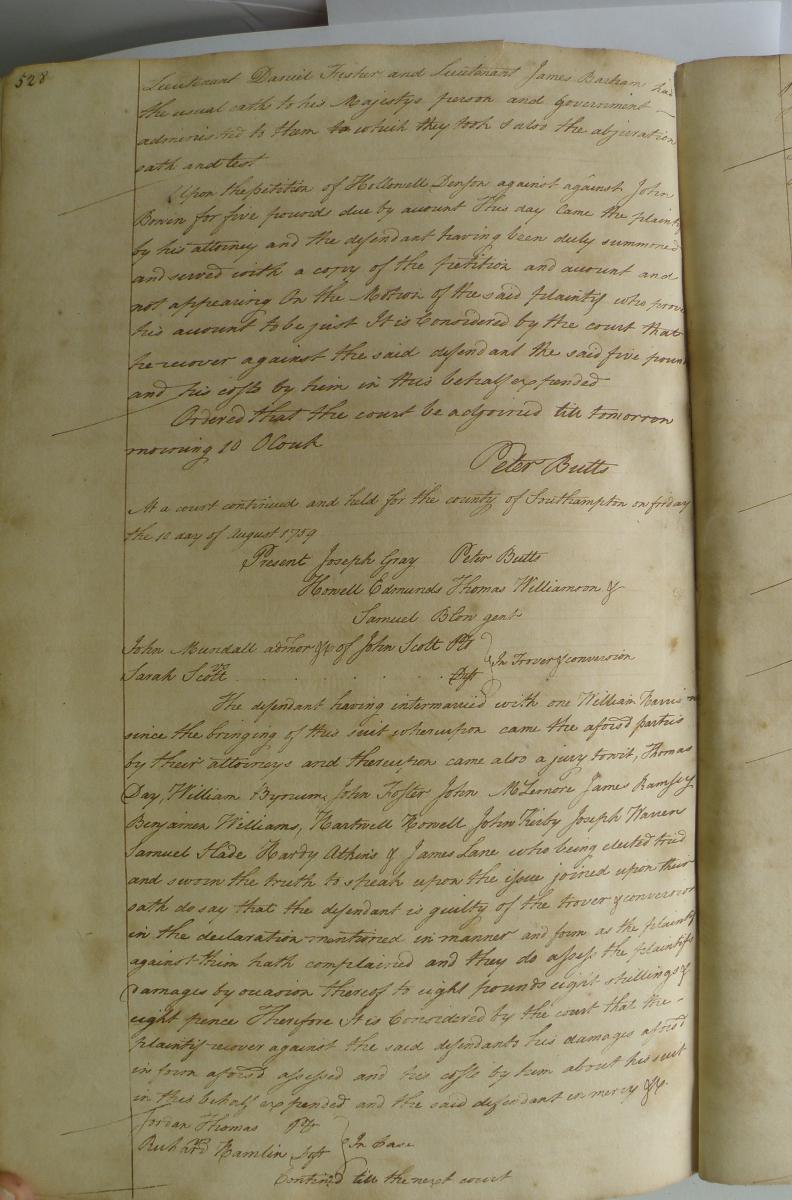 528
Lieutenant Daniel Fisher and Lieutenant James Barham had
the usual oaths to his Majestys person and government
administred to them to which they took & also the abjuration
oath and test
Upon the petition of Hollowell Denson against against John
Bowin for five pounds due by account This day came the plaintif
by his attorney and the defendant having been duly summoned
and served with a copy of the petition and account and
not appearing On the Motion of the said plaintif who prove
his account to be just It is Considered by the court that
he recover against the said defendant the said five pound
and his costs by him in this behalf expended
Ordered that the court be adjoined till tomorrow
morning 10 OClock
Peter Butts
At a court continued and held for the county of Southampton on friday
the 10 day of August 1759
Present Joseph Gray Peter Butts
Howell Edmunds Thomas Williamson &
Samuel Blow gent
John Mundall admor &c of John Scott Plt
vs
Sarah Scott Deft
In Trover & conversion
The defendant having intermarried with one William Harris
since the bringing of this suit whereupon came the aforsd parties
by their attorneys and thereupon came also a jury towit, Thomas
Day, William Bynum, John Foster John McLemore James Ramsey
Benjamen Williams, Hartwell Howell John Kirby Joseph Warren
Samuel Slade Hardy Atkins & James Lane who being elected tried
and sworn the truth to speak upon the issue joined upon their
oath do say that the defendant is guilty of the trover & conversion
in the declaration mentioned in manner and form as the plaintif
against them hath complained and they do assess the plaintifs
damages by occasion thereof to eight pounds eight shillings &
eight pence Therefore It is Considered by the court that the
plaintif recover against the said defendants his damages aforsd
in form aforsd assessed and his costs by him about his suit
in this behalf expended and the said defendant in mercy &c.
Jordan Thomas Plt
vs
Richard Hamlin Deft
In Case
Continued till the next court